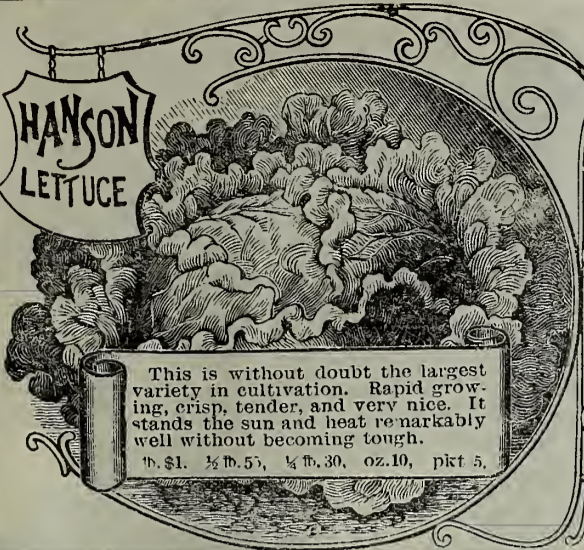 HANSON
LETTUCE
This is without doubt the largest
variety in cultivation. Rapid grow-
ing, crisp, tender, and very nice. It
stands the sun and heat remarkably
well without becoming tough.
℔. $1. ½ ℔. 55, ¼ ℔. 30, oz. 10, pkt 5.